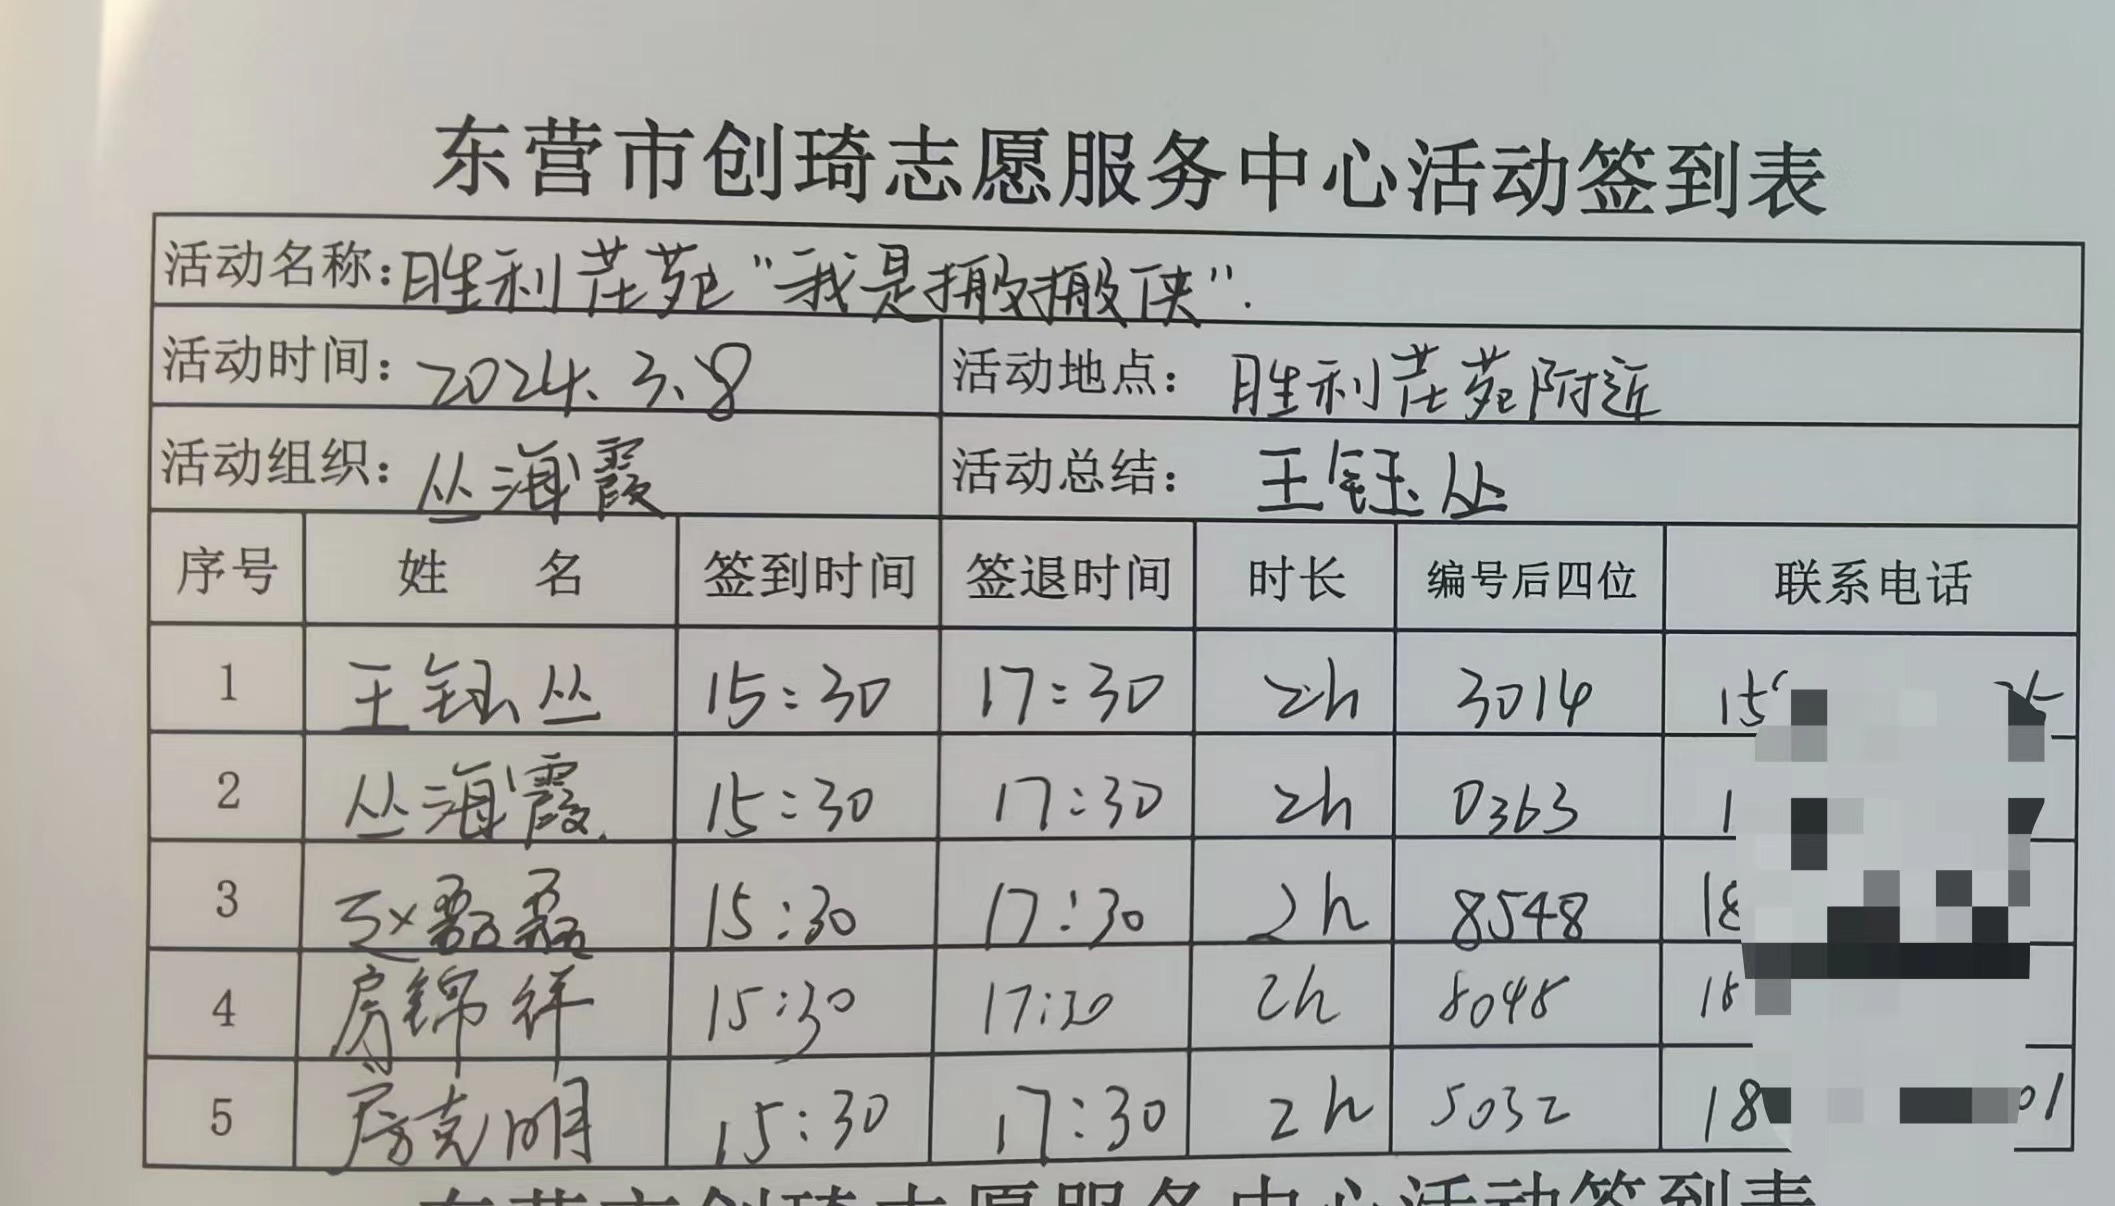 东营市创琦志愿服务中心活动签到表
活动名称:胜利花苑“我是搬搬侠”.
活动时间: 2024.3.8 活动地点: 胜利花苑附近
活动组织: 丛海霞 活动总结: 王钰丛
序号 姓 名 签到时间 签退时间 时长 编号后四位 联系电话
1 王钰丛 15:30 17:30 2h 3014 15
2 丛海霞. 15:30 17:30 2h 0363 1
3 赵磊磊 15:30 17:30 2h 8548 18
4 房锦祥 15:30 17:30 2h 8048 18
5 房克明 15:30 17:30 2h 5032 18 01
东营市创琦志愿服务中心活动签到表